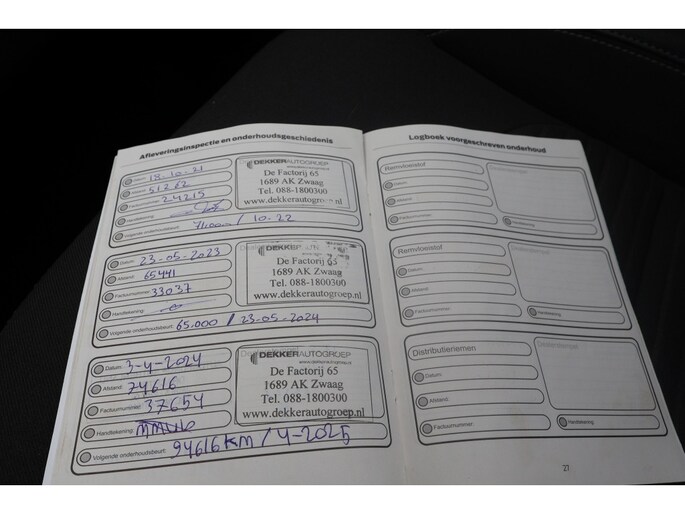 Afleveringsinspectie en onderhoudsgeschiedenis
Datum: 18-10-21
Afstand: 51262
Factuurnummer: 24215
Handtekening:
Volgende onderhoudsbeurt: 71.000 / 10-22
DEKKERAUTOGROEP
De Factorij 65
1689 AK Zwaag
Tel. 088-1800300
www.dekkerautogroep.nl
Datum: 23-05-2023
Afstand: 65441
Factuurnummer: 33037
Handtekening:
Volgende onderhoudsbeurt: 65.000 / 23-05-2024
DEKKER
De Factorij 65
1689 AK Zwaag
Tel. 088-1800300
www.dekkerautogroep.nl
Datum: 3-4-2024
Afstand: 74616
Factuurnummer: 37654
Handtekening:
Volgende onderhoudsbeurt: 94616 KM / 4-2025
DEKKERAUTOGROEP
www.dekkerautogroep.nl
De Factorij 65
1689 AK Zwaag
Tel. 088-1800300
www.dekkerautogroep.nl
Logboek voorgeschreven onderhoud
Remvloeistof
Datum:
Afstand:
Factuurnummer:
Dealerstempel
Handtekening
Remvloeistof
Datum:
Afstand:
Factuurnummer:
Dealerstempel
Handtekening
Distributieriemen
Datum:
Afstand:
Factuurnummer:
Dealerstempel
Handtekening
27